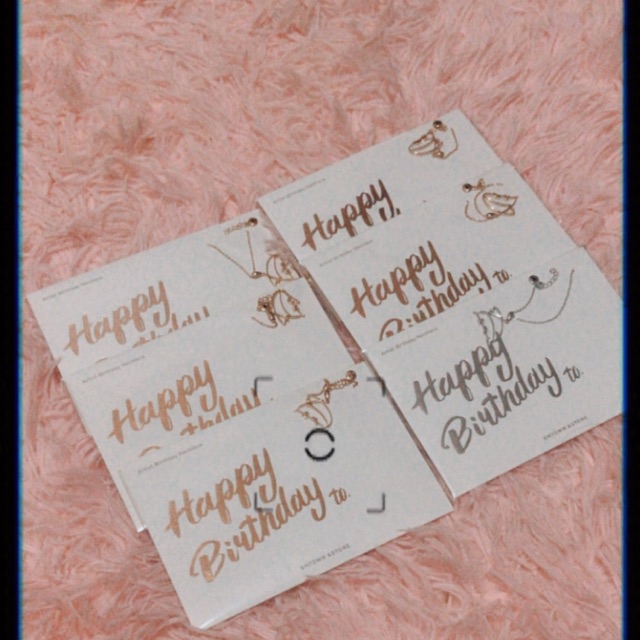 Happy
Happy
Birthday to.
Happy
Birthday to.
Happy
Birthday
Happy
Birthday
Happy
Birthday to.